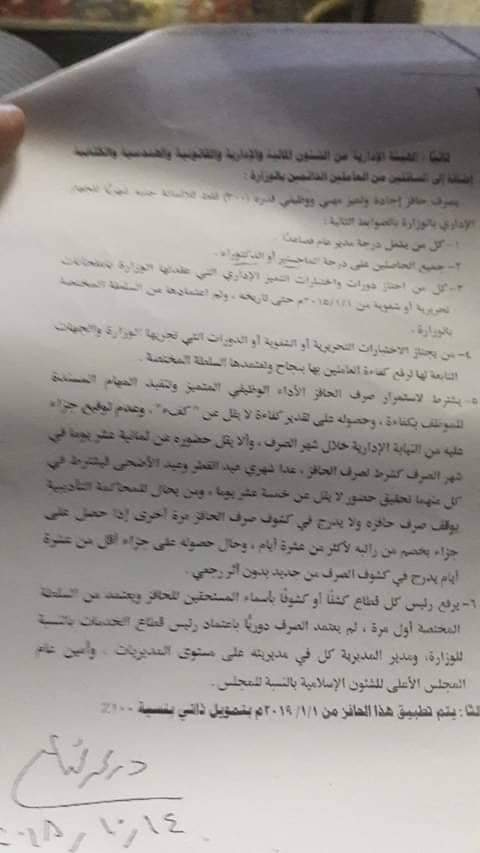 ثانيًا : الهيئة الإدارية من الشئون المالية والإدارية والقانونية والهندسية والكتابية
إضافة إلى السائقين من العاملين الدائمين بالوزارة :
يصرف حافز إجادة وتميز مهني ووظيفي قدره (٣٠٠) فقط ثلاثمائة جنيه شهريًا للجهاز
الإداري بالوزارة بالضوابط التالية :
١- كل من يشغل درجة مدير عام فصاعدًا .
٢- جميع الحاصلين على درجة الماجستير أو الدكتوراه .
٣- كل من اجتاز دورات واختبارات التميز الإداري التي عقدتها الوزارة بامتحانات
تحريرية أو شفوية من ٢٠١٥/١/١م حتى تاريخه ، وتم اعتمادها من السلطة المختصة
بالوزارة .
٤- من يجتاز الاختبارات التحريرية أو الشفوية أو الدورات التي تجريها الوزارة والجهات
التابعة لها لرفع كفاءة العاملين بها بنجاح وتعتمدها السلطة المختصة .
٥- يشترط لاستمرار صرف الحافز الأداء الوظيفي المتميز وتنفيذ المهام المسندة
للموظف بكفاءة ، وحصوله على تقدير كفاءة لا يقل عن " كفء " ، وعدم توقيع جزاء
عليه من النيابة الإدارية خلال شهر الصرف ، وألا يقل حضوره عن ثمانية عشر يومًا في
شهر الصرف كشرط لصرف الحافز ، عدا شهري عيد الفطر وعيد الأضحى فيشترط في
كل منهما تحقيق حضور لا يقل عن خمسة عشر يومًا ، ومن يحال للمحاكمة التأديبية
يوقف صرف حافزه ولا يدرج في كشوف صرف الحافز مرة أخرى إذا حصل على
جزاء بخصم من راتبه لأكثر من عشرة أيام ، وحال حصوله على جزاء أقل من عشرة
أيام يدرج في كشوف الصرف من جديد بدون أثر رجعي .
٦- يرفع رئيس كل قطاع كشفًا أو كشوفًا بأسماء المستحقين للحافز ويعتمد من السلطة
المختصة أول مرة ، ثم يعتمد الصرف دوريًا باعتماد رئيس قطاع الخدمات بالنسبة
للوزارة، ومدير المديرية كل في مديريته على مستوى المديريات . وأمين عام
المجلس الأعلى للشئون الإسلامية بالنسبة للمجلس .
لثًا : يتم تطبيق هذا الحافز من ٢٠١٩/١/١م بتمويل ذاتي بنسبة ١٠٠٪
٢٠١٨/١٠/١٤